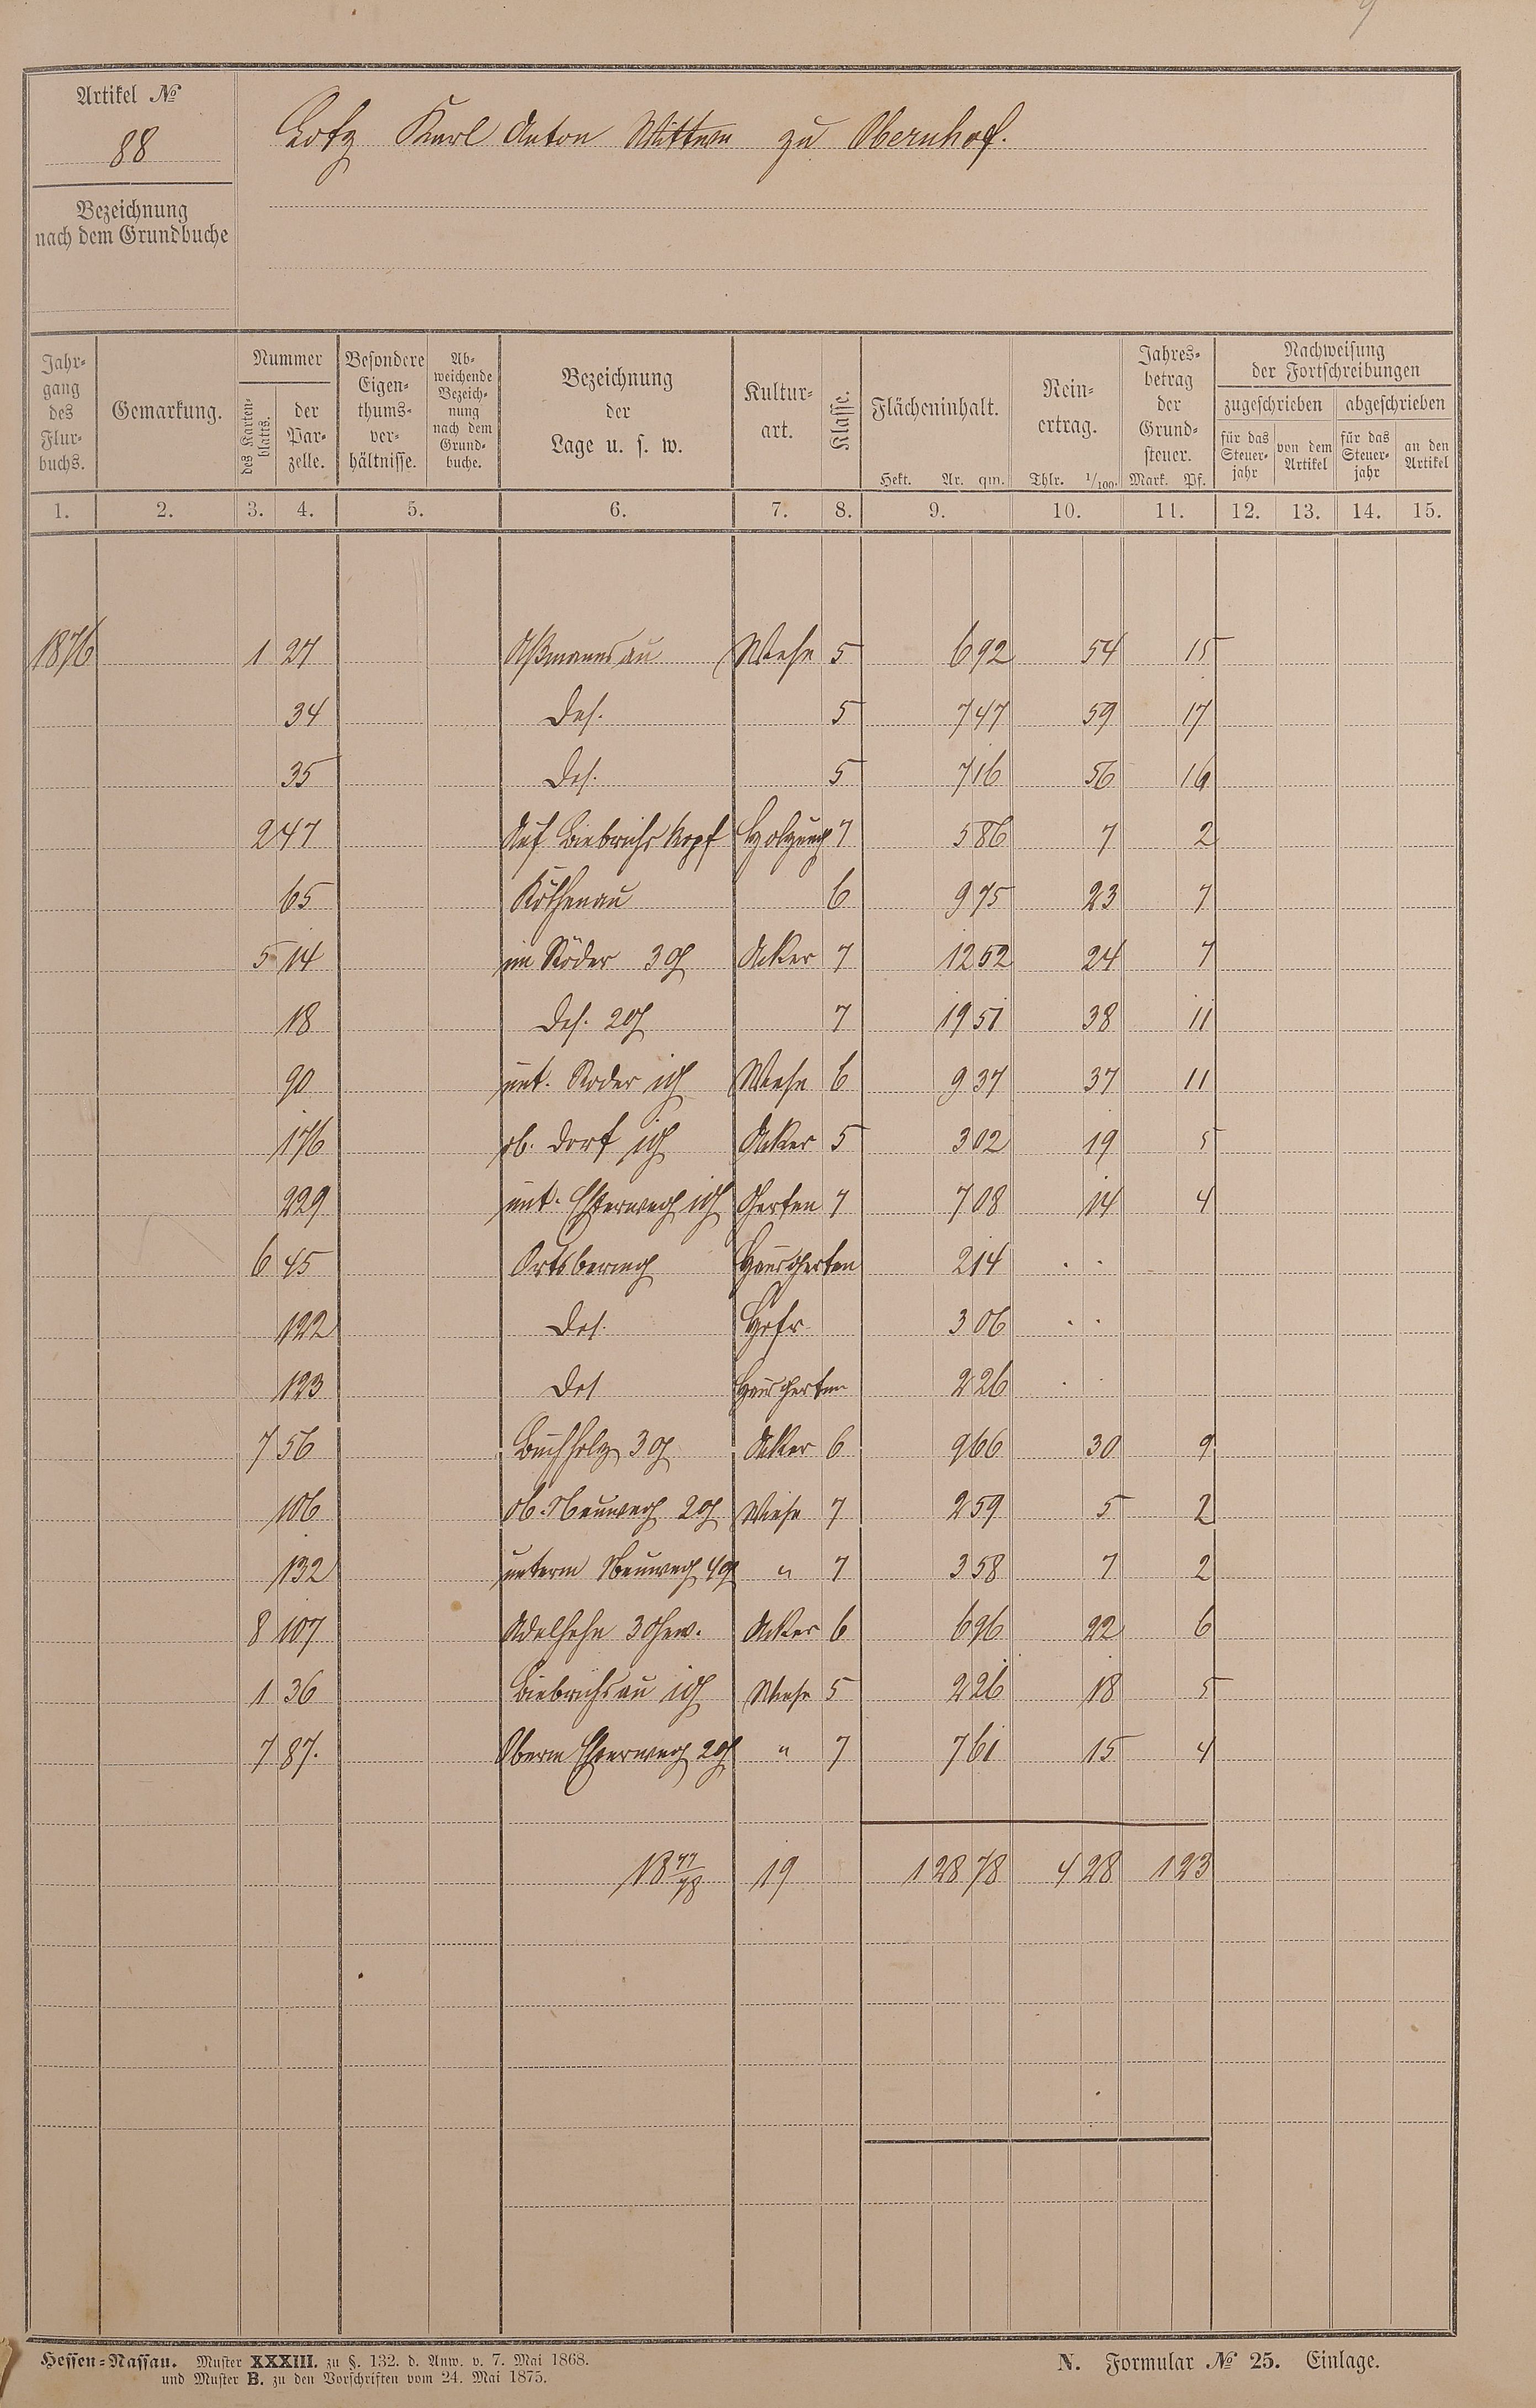 Artikel №
88
Lotz Karl Anton Wittwe zu Obernhof.
Bezeichnung
nach dem Grundbuche
Jahr-
gang
des
Flur-
buchs.
Gemarkung.
Nummer
des Karten-
blatts.
der
Par-
zelle.
Besondere
Eigen-
thums-
ver-
hältnisse.
Ab-
weichende
Bezeich-
nung
nach dem
Grund-
buche.
Bezeichnung
der
Lage u. s. w.
Kultur-
art.
Klasse.
Flächeninhalt.
Hekt. Ar. qm.
Rein-
ertrag.
Thlr. 1/100.
Jahres-
betrag
der
Grund-
steuer.
Mark. Pf.
Nachweisung
der Fortschreibungen
zugeschrieben abgeschrieben
für das
Steuer-
jahr
von dem
Artikel
für das
Steuer-
jahr
an den
Artikel
1. 2. 3. 4. 5. 6. 7. 8. 9. 10. 11. 12. 13. 14. 15.
1876 1 27 Aßmannsau Wiese 5 6 92 54 15
34 Des. 5 7 47 59 17
35 Des. 5 7 16 56 16
2 47 Auf Biebrichs Kopf Holzung 7 5 86 7 2
65 Köthenau 6 9 75 23 7
5 14 im Röder 3 g Acker 7 12 52 24 7
18 Des. 2 g 7 19 51 38 11
90 unt. Röder 1 g Wiese 6 9 37 37 11
176 ob. Dorf 1 g Acker 5 3 02 19 5
229 unt. 1 g Garten 7 7 08 14 4
6 45 Ortsbering Hausgarten 2 14 . .
122 Des. Hofr. 3 06 . .
123 Des Hausgarten 2 26 . .
7 56 Buchholz 3 g Acker 6 9 66 30 9
106 ob. Neuweg 2 g Wiese 7 2 59 5 2
132 unterm Neuweg 4 g " 7 3 58 7 2
8 107 Adelhahn 3 Gew. Acker 6 6 96 22 6
1 36 Biebrichsau 1 g Wiese 5 2 26 18 5
7 87. Oberm 2 g " 7 7 61 15 4
18 77/78 19 1 28 78 4 28 1 23
Hessen-Nassau. Muster XXXIII. zu §. 132. d. Anw. v. 7. Mai 1868.
und Muster B. zu den Vorschriften vom 24. Mai 1875.
N. Formular № 25. Einlage.